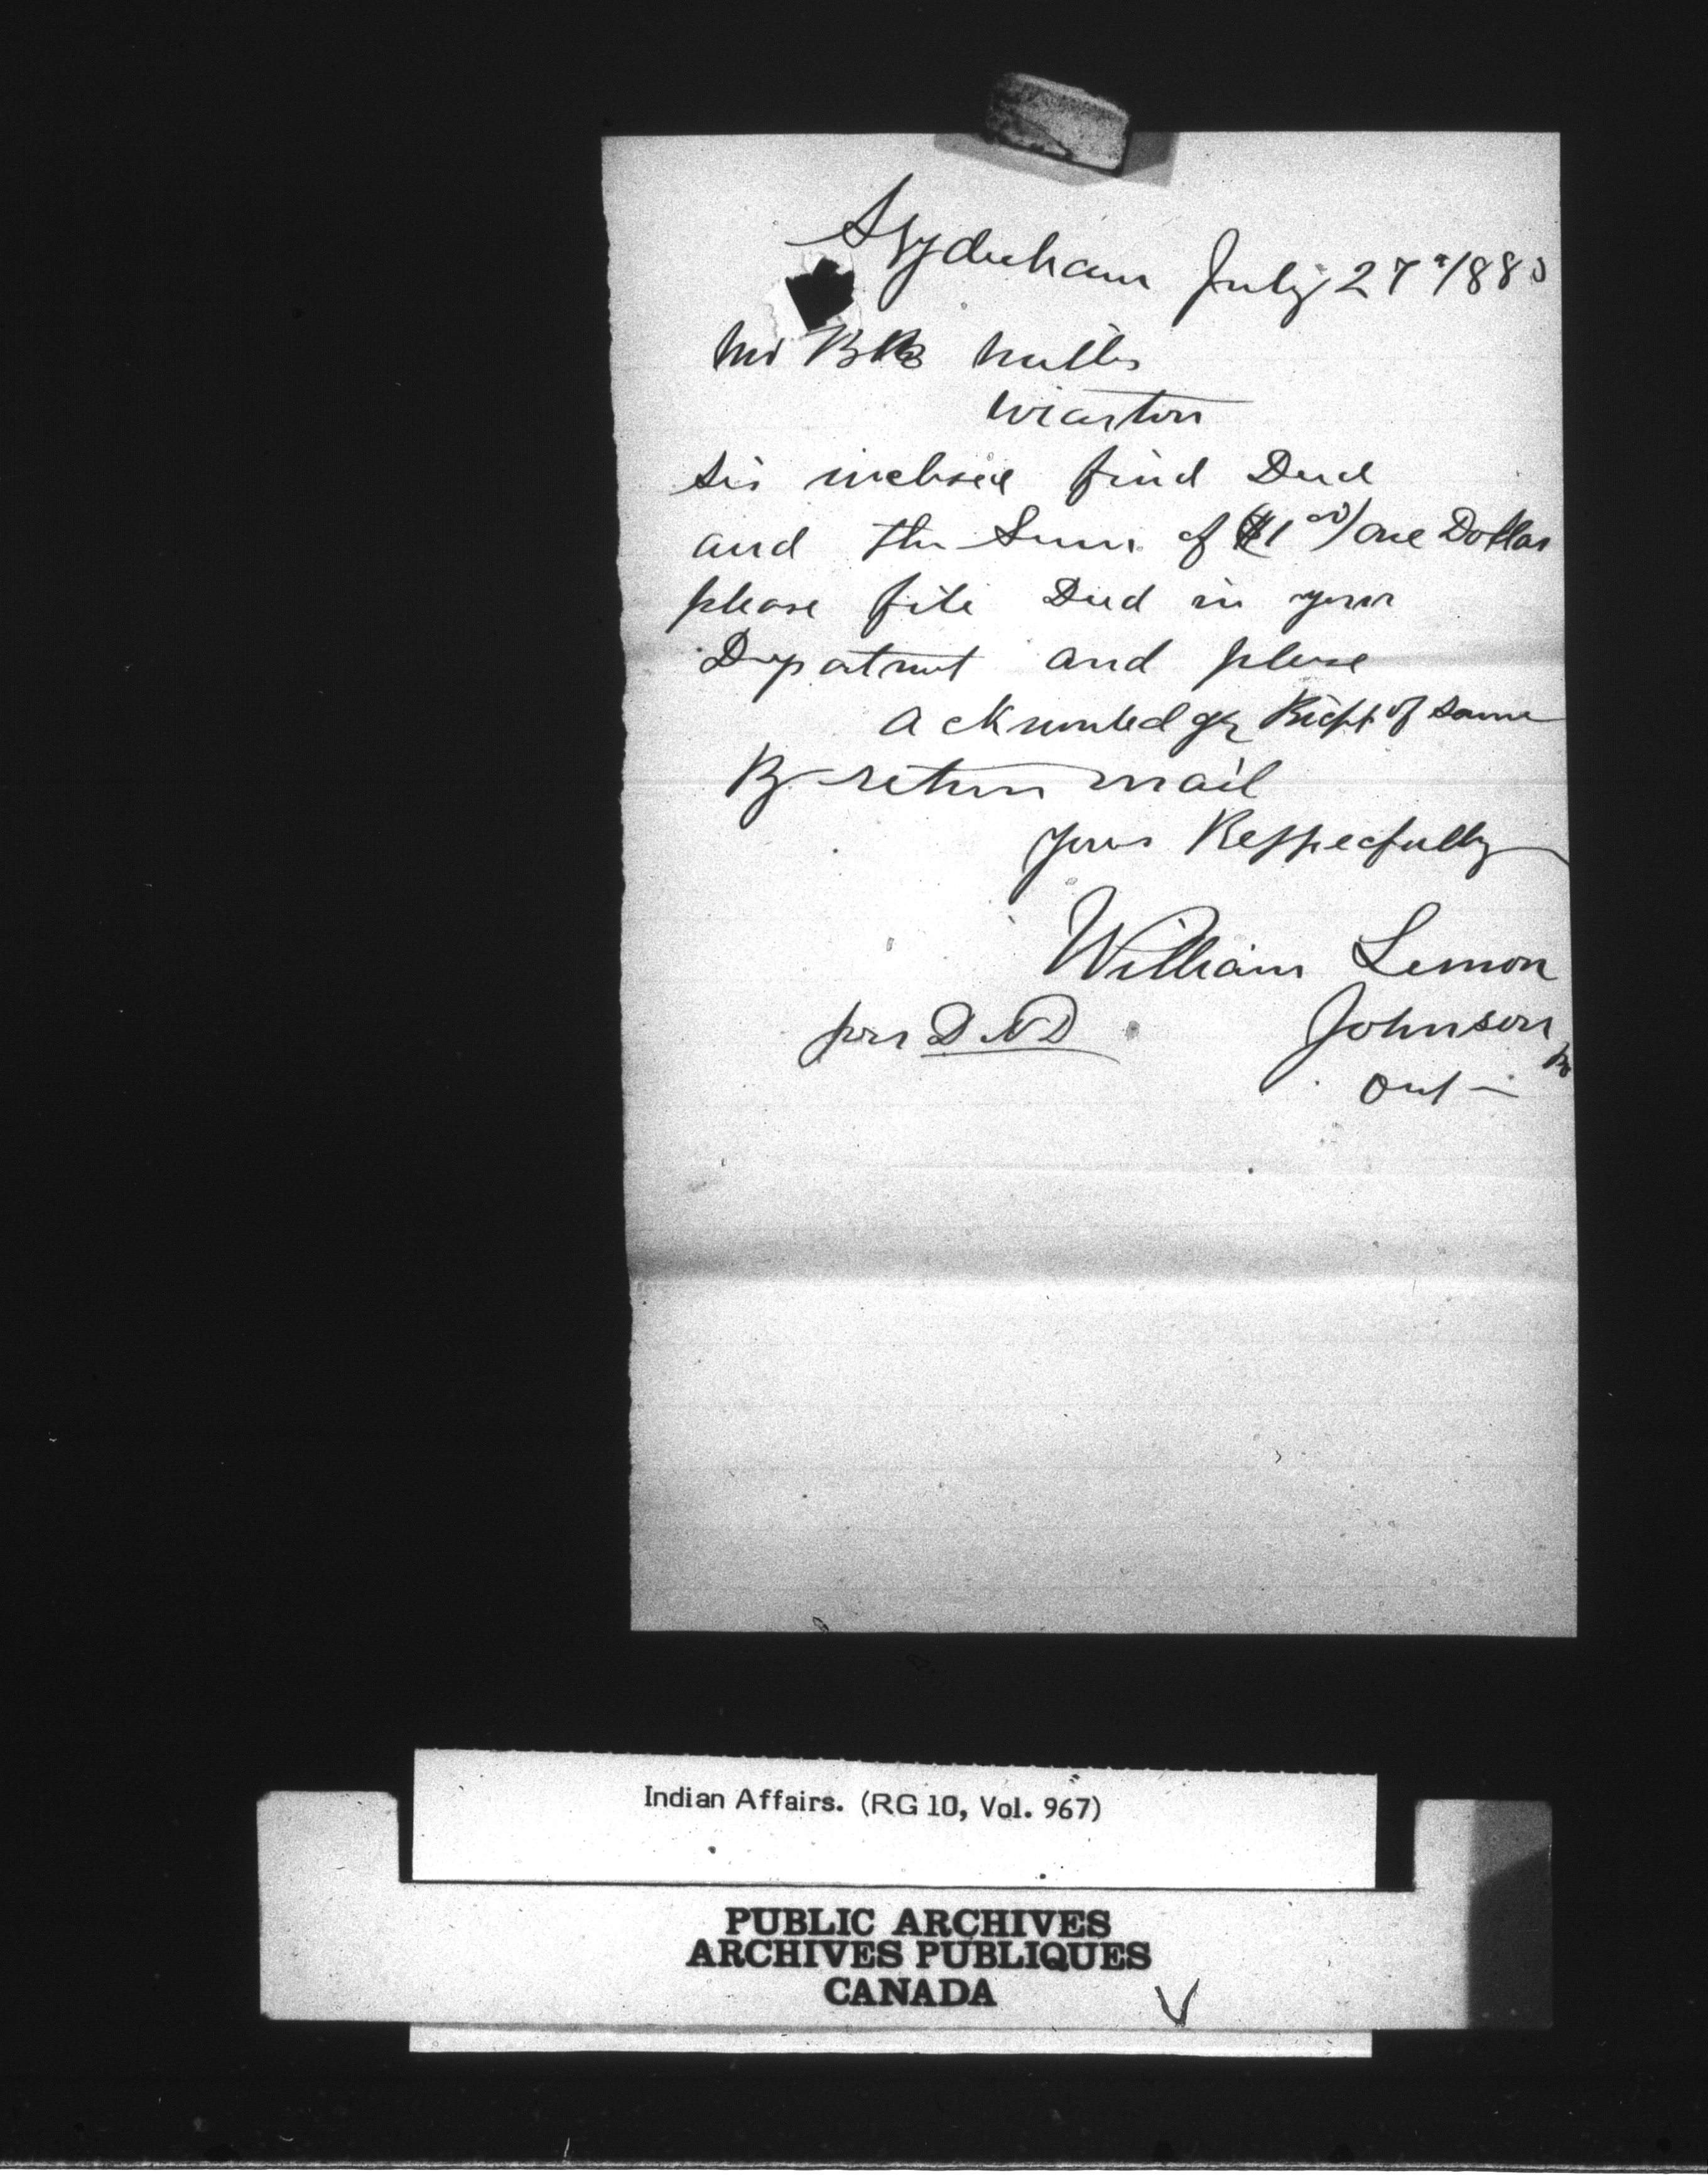 Sydenham July 27th 188
Mr B B Miller
Wiarton
Sir inclosed find Deed
and the Sum of ($1 00) one Dollar
please file Deed in your
Depatmnt and please
acknowledge Ricpt of same
By return mail
yours Respecfully
William Lemon
per D N D Johnson
Ont
Indian Affairs. (RG 10, Vol. 967)
PUBLIC ARCHIVES
ARCHIVES PUBLIQUES
CANADA